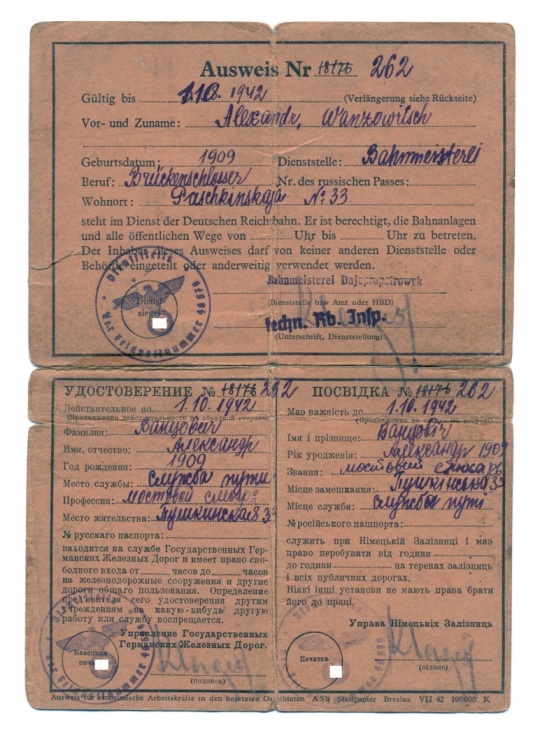 Ausweis Nr 18176 262
Gültig bis 1.10. 1942 (Verlängerung siehe Rückseite)
Vor- und Zuname: Alexandr, Wanzowitsch
Geburtsdatum: 1909 Dienststelle: Bahnmeisterei
Beruf: Brückenschlosser Nr. des russischen Passes:
Wohnort: Paschkinskaja № 33
steht im Dienst der Deutschen Reichsbahn. Er ist berechtigt, die Bahnanlagen
und alle öffentlichen Wege von Uhr bis Uhr zu betreten.
Der Inhaber dieses Ausweises darf von keiner anderen Dienststelle oder
Behörde eingeteilt oder anderweitig verwendet werden.
Bahnmeisterei Dnjepropetrowsk
Dienst-
siegel
(Dienststelle bzw Amt oder HBD)
techn. Rb. Insp.
(Unterschrift, Dienststellung)
УДОСТОВЕРЕНИЕ № 18176 262
Действительное по 1.10.1942
(Продолжение действительности на обратной стороне)
Фамилия: Ванцович
Имя, отчество: Александр
Год рождения: 1909
Место службы: Служба пути
Профессия: мостовой слесарь
Место жительства: Пушкинская 33
№ русского паспорта:
находится на службе Государственных Гер-
манских Железных Дорог и имеет право сво-
бодного входа от часов до часов
на железнодорожные сооружения и другие
дороги общаго пользования. Определение
предъявителя сего удостоверения другим
учреждением на какую-нибудь другую
работу или службу воспрещается.
Управление Государственных
Германских Железных Дорог.
Казенная
печать
(подпись)
ПОСВІДКА № 18176 262
Має важність до 1.10.1942
Імя і прізвище: Ванцовіч
Александр 1909
Рік уродження:
Звання: мостовий слюсарь
Місце замешкання: Пушкінська 33
Місце служби: Служба путі
№ російського пашпорта:
служить при Німецькій Залізниці і має
право перебувати від години
до години на теренах залізниці
і всіх публичних дорогах.
Ніякі інші установи не мають права брати
його до праці.
Управа Німецькіх Залізниць
Печатка
(підпис)
Ausweis für einheimische Arbeitskräfte in den besetzten Ostgebieten A 5 b Steinpapier Breslau VII 42 100000 K